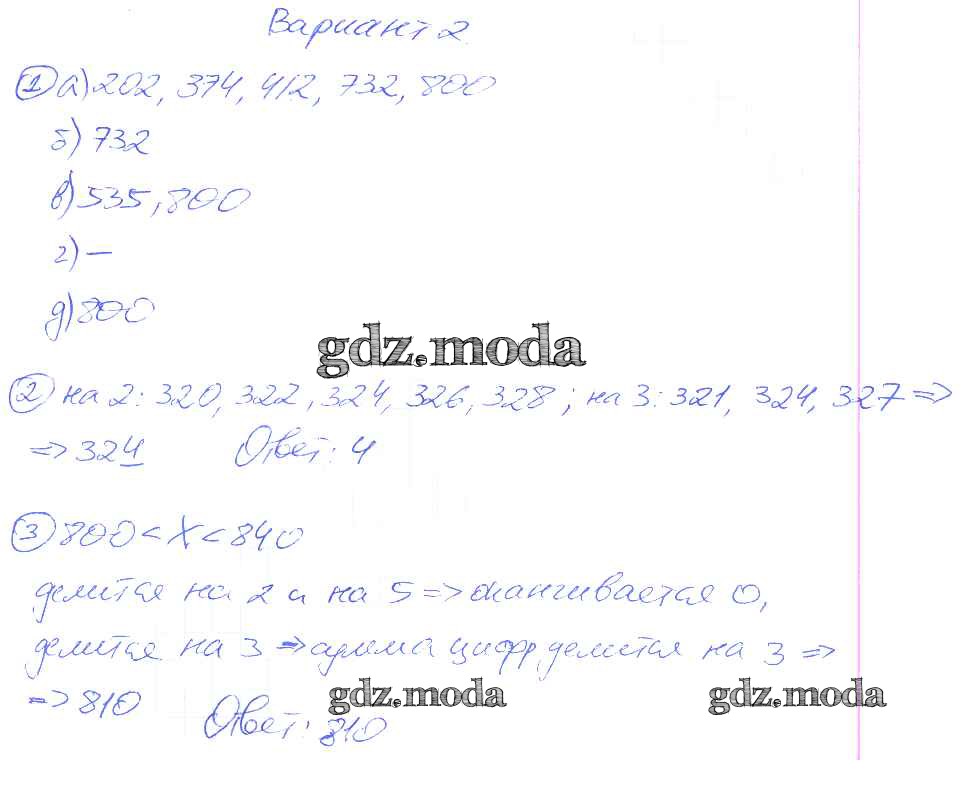 Вариант 2
① а) 202, 374, 412, 732, 800
б) 732
в) 535, 800
г) —
д) 800
gdz.moda
② на 2: 320, 322, 324, 326, 328; на 3: 321, 324, 327 =>
=> 324 Ответ: 4
③ 800 < X < 840
делится на 2 и на 5 => оканчивается 0,
делится на 3 => сумма цифр делится на 3 =>
=> 810 Ответ: 810
gdz.moda gdz.moda